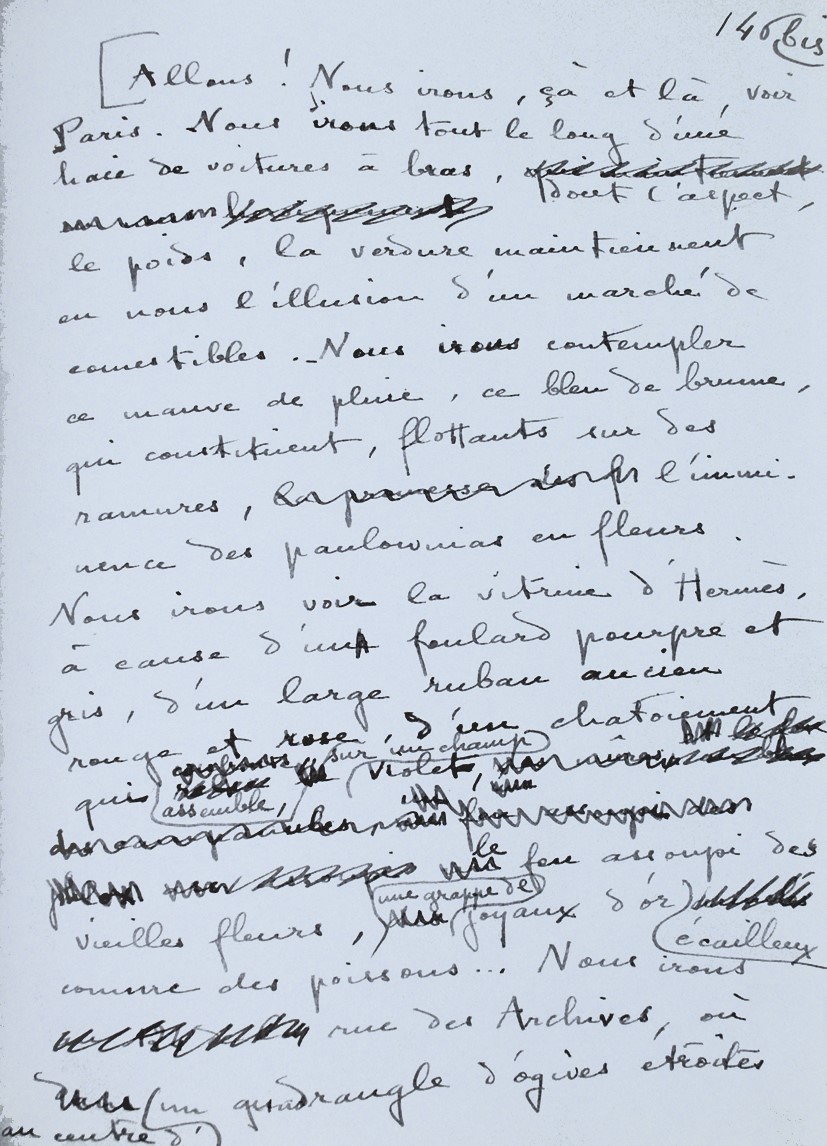 146 bis
Allons ! Nous irons, çà et là, voir
Paris. Nous irons tout le long d'une
haie de voitures à bras,
dont l'aspect,
le poids, la verdure maintiennent
en nous l'illusion d'un marché de
comestibles. - Nous irons contempler
ce mauve de pluie, ce bleu de brume,
qui constituent, flottants sur des
ramures, l'immi-
nence des paulownias en fleurs.
Nous irons voir la vitrine d'Hermès,
à cause d'un foulard pourpre et
gris, d'un large ruban ancien
rouge et rose, d'un chatoiement
sur un champ
qui violet,
assemble,
le
feu assoupi des
une grappe de
vieilles fleurs, joyaux d'or
écailleux
comme des poissons... Nous irons
rue des Archives, où
un quadrangle d'ogives étroites
au centre d'